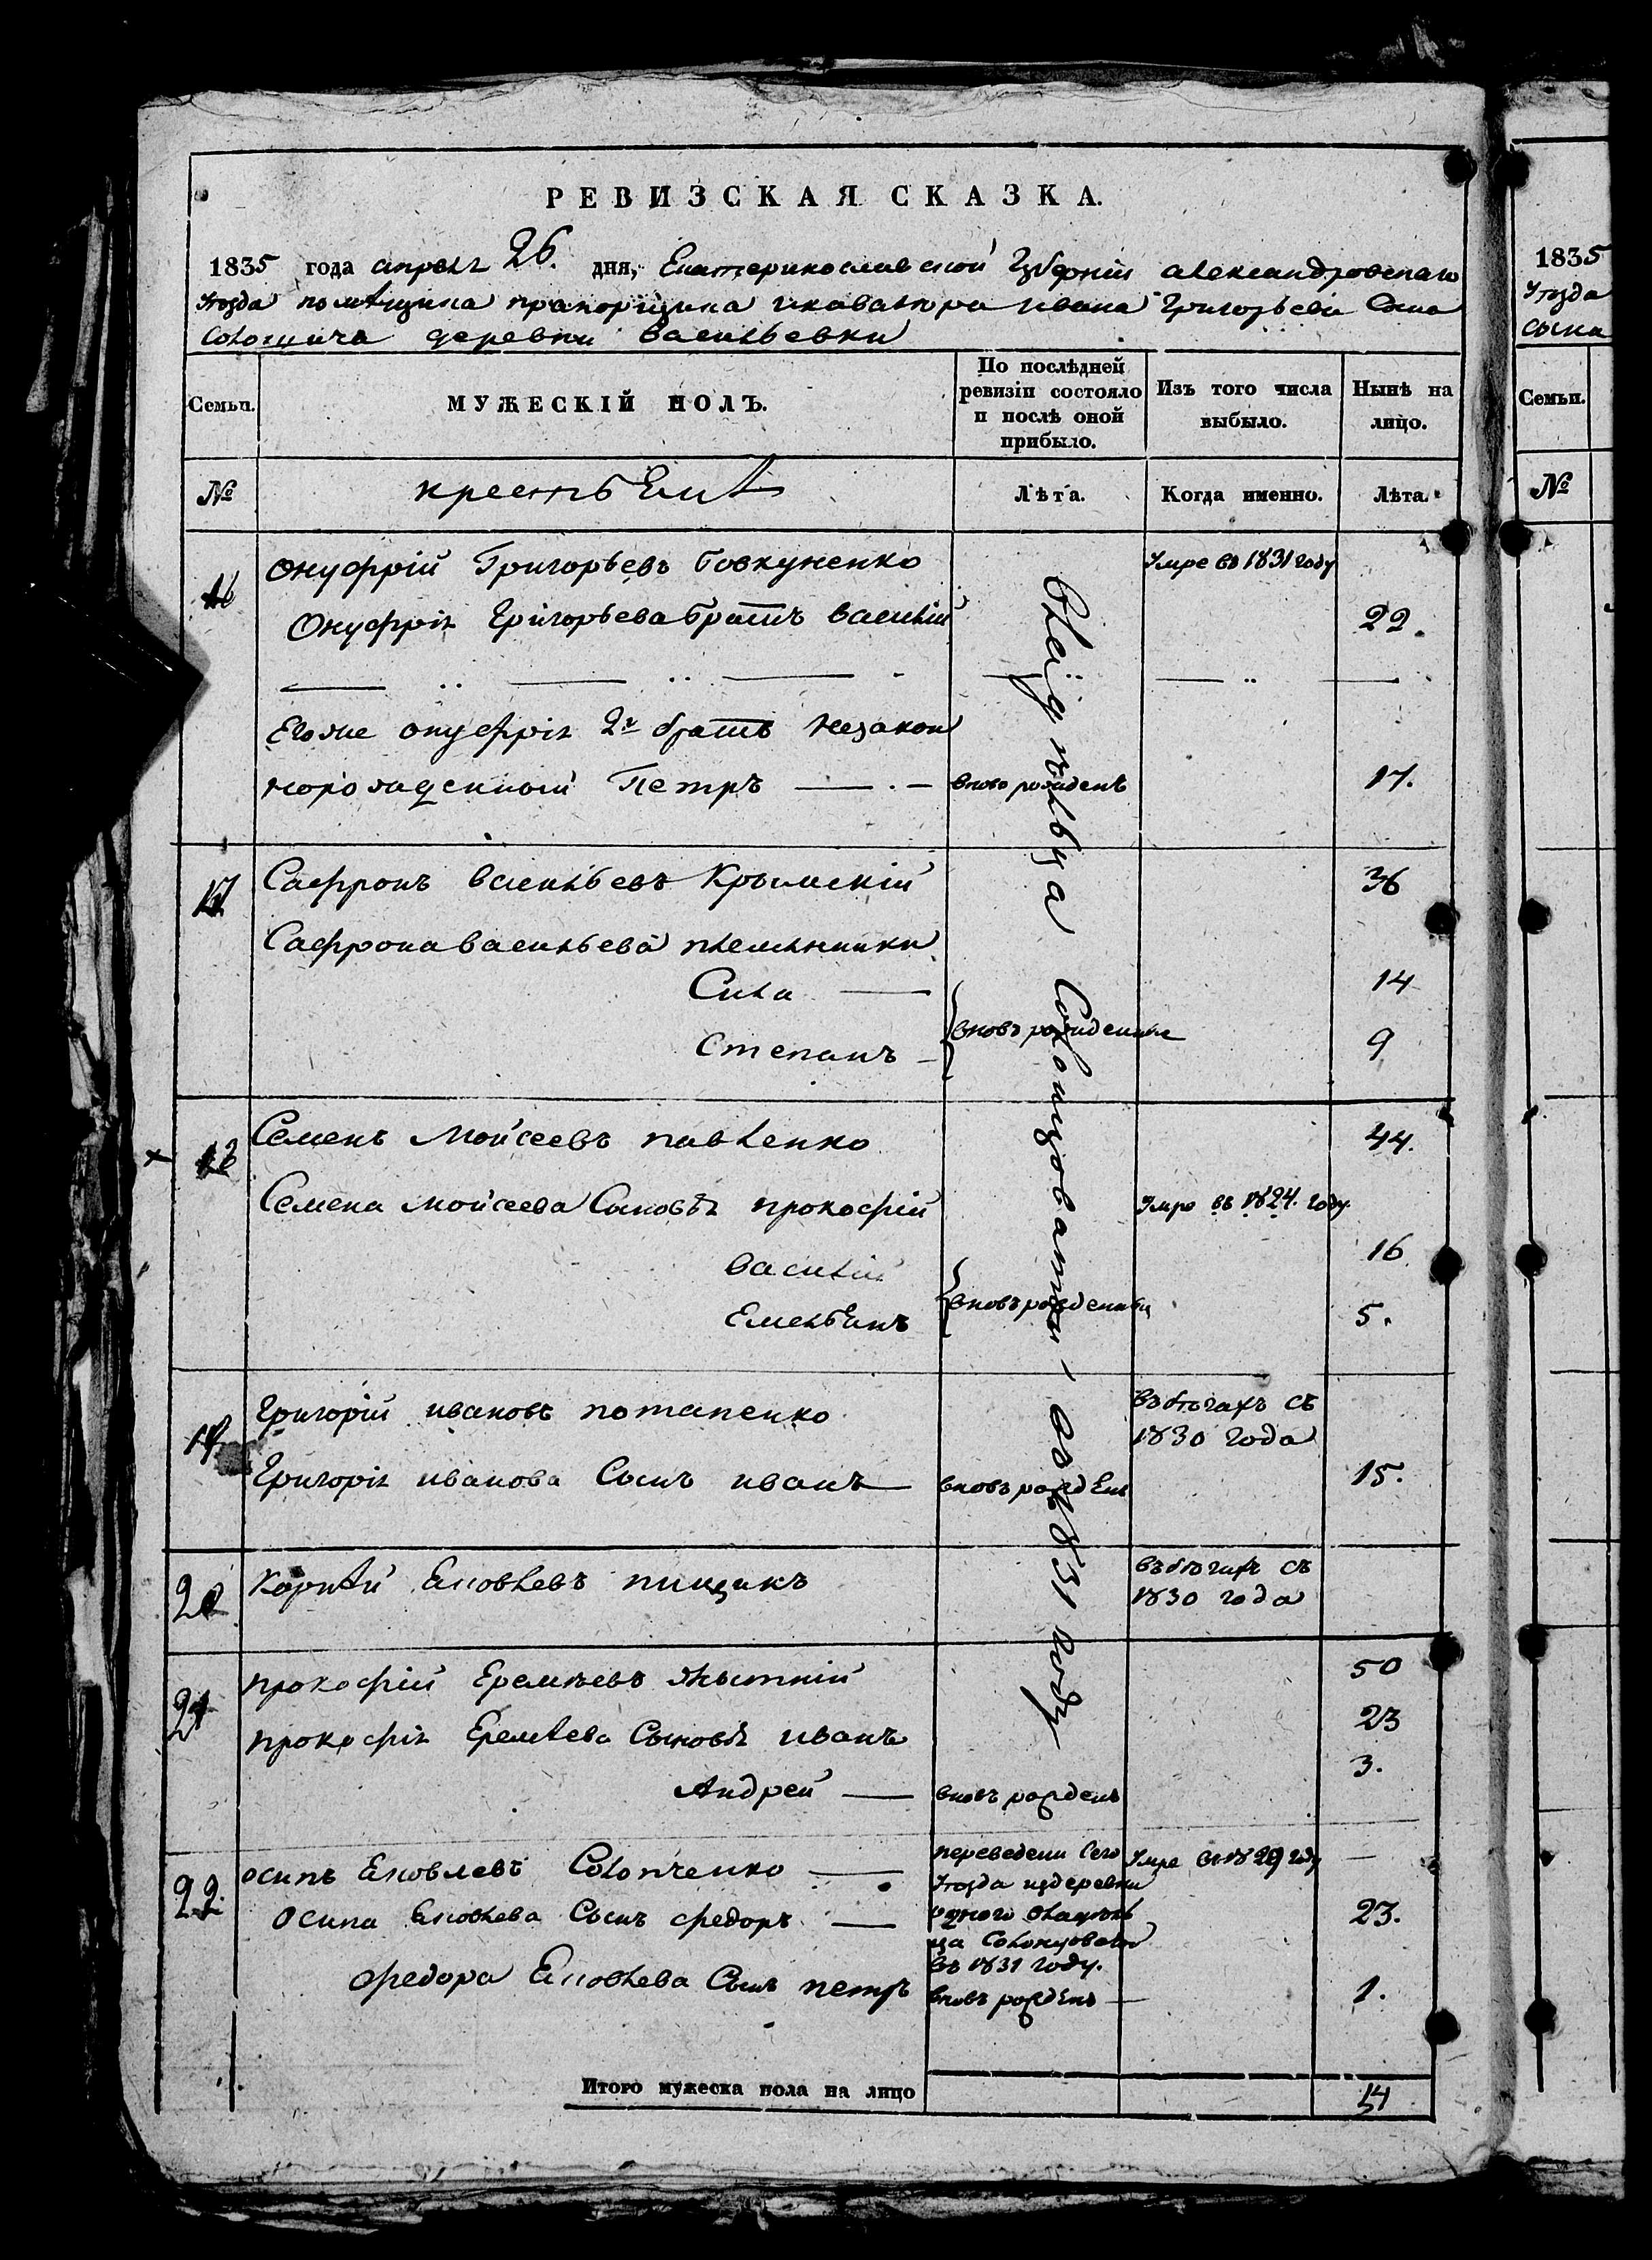 РЕВИЗСКАЯ СКАЗКА.
1835 года апреля 26. дня, Екатеринославской Губерніи александровскаго
уезда помѣщика прапорщика и кавалера ивана Григорьева Сына
деревни васильевки
Семьи.
МУЖЕСКІЙ ПОЛЪ.
По послѣдней ревизіи состояло и послѣ оной прибыло.
Изъ того числа выбыло.
Нынѣ на лицо.
№
крестьянѣ
Лѣта.
Когда именно.
Лѣта.
16
Онуфрій Григорьевъ Бовкуненко
Умре въ 1831 году
Онуфрія Григорьева братъ василій
22.
Егоже онуфрія 2й братъ незакон
норожденный Петръ — вновь рожденъ
17.
17
Сафронъ васильевъ Крымскій
36
Сафрона васильева племянники
Сила —
14
Степанъ —
вновь рожденные
9
18
Семенъ Мойсеевъ павленко
44.
Семена мойсеева Сыновья прокофій
Умре въ 1824. году
василій
16.
Емельянъ
вновърожденны
5.
19
Григорій ивановъ потапенко
въ бѣгахъ съ
1830 года
Григорія иванова Сынъ иванъ — вновърожденъ
15.
20
Корнѣй Яковлевъ пищикъ
въ бѣгахъ съ
1830 года
21
прокофій Еремѣевъ
50
прокофія Еремѣева Сыновья иванъ
23
Андрей — вновъ рожденъ
3.
22.
осипъ Яковлевъ Солопченко —
переведени Сего
Умре въ 1829 году
—
уезда издеревни
осипа Яковлева Сынъ федоръ —
владѣль
23.
ца
въ 1831 году.
федора Яковлева Сынъ петръ
вновъ рожденъ —
1.
владѣльца — въ 1831 году
Итого мужеска пола на лицо
14
1835
уезда
сына
Семьи.
№